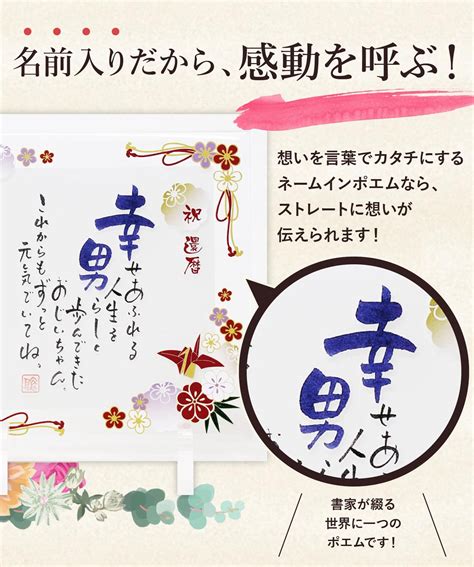 名前入りだから、感動を呼ぶ！
想いを言葉でカタチにする
ネームインポエムなら、
ストレートに想いが
伝えられます！
祝還暦
幸せあふれる
人生を
男らしと
歩んできた
おじいちゃん。
これからもずっと
元気でいてね。
幸せあ
人生
男ら
書家が綴る
世界に一つの
ポエムです！